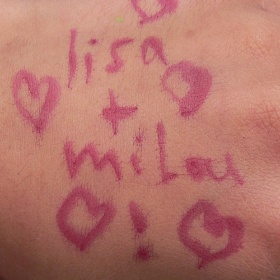 lisa
+
milau
!